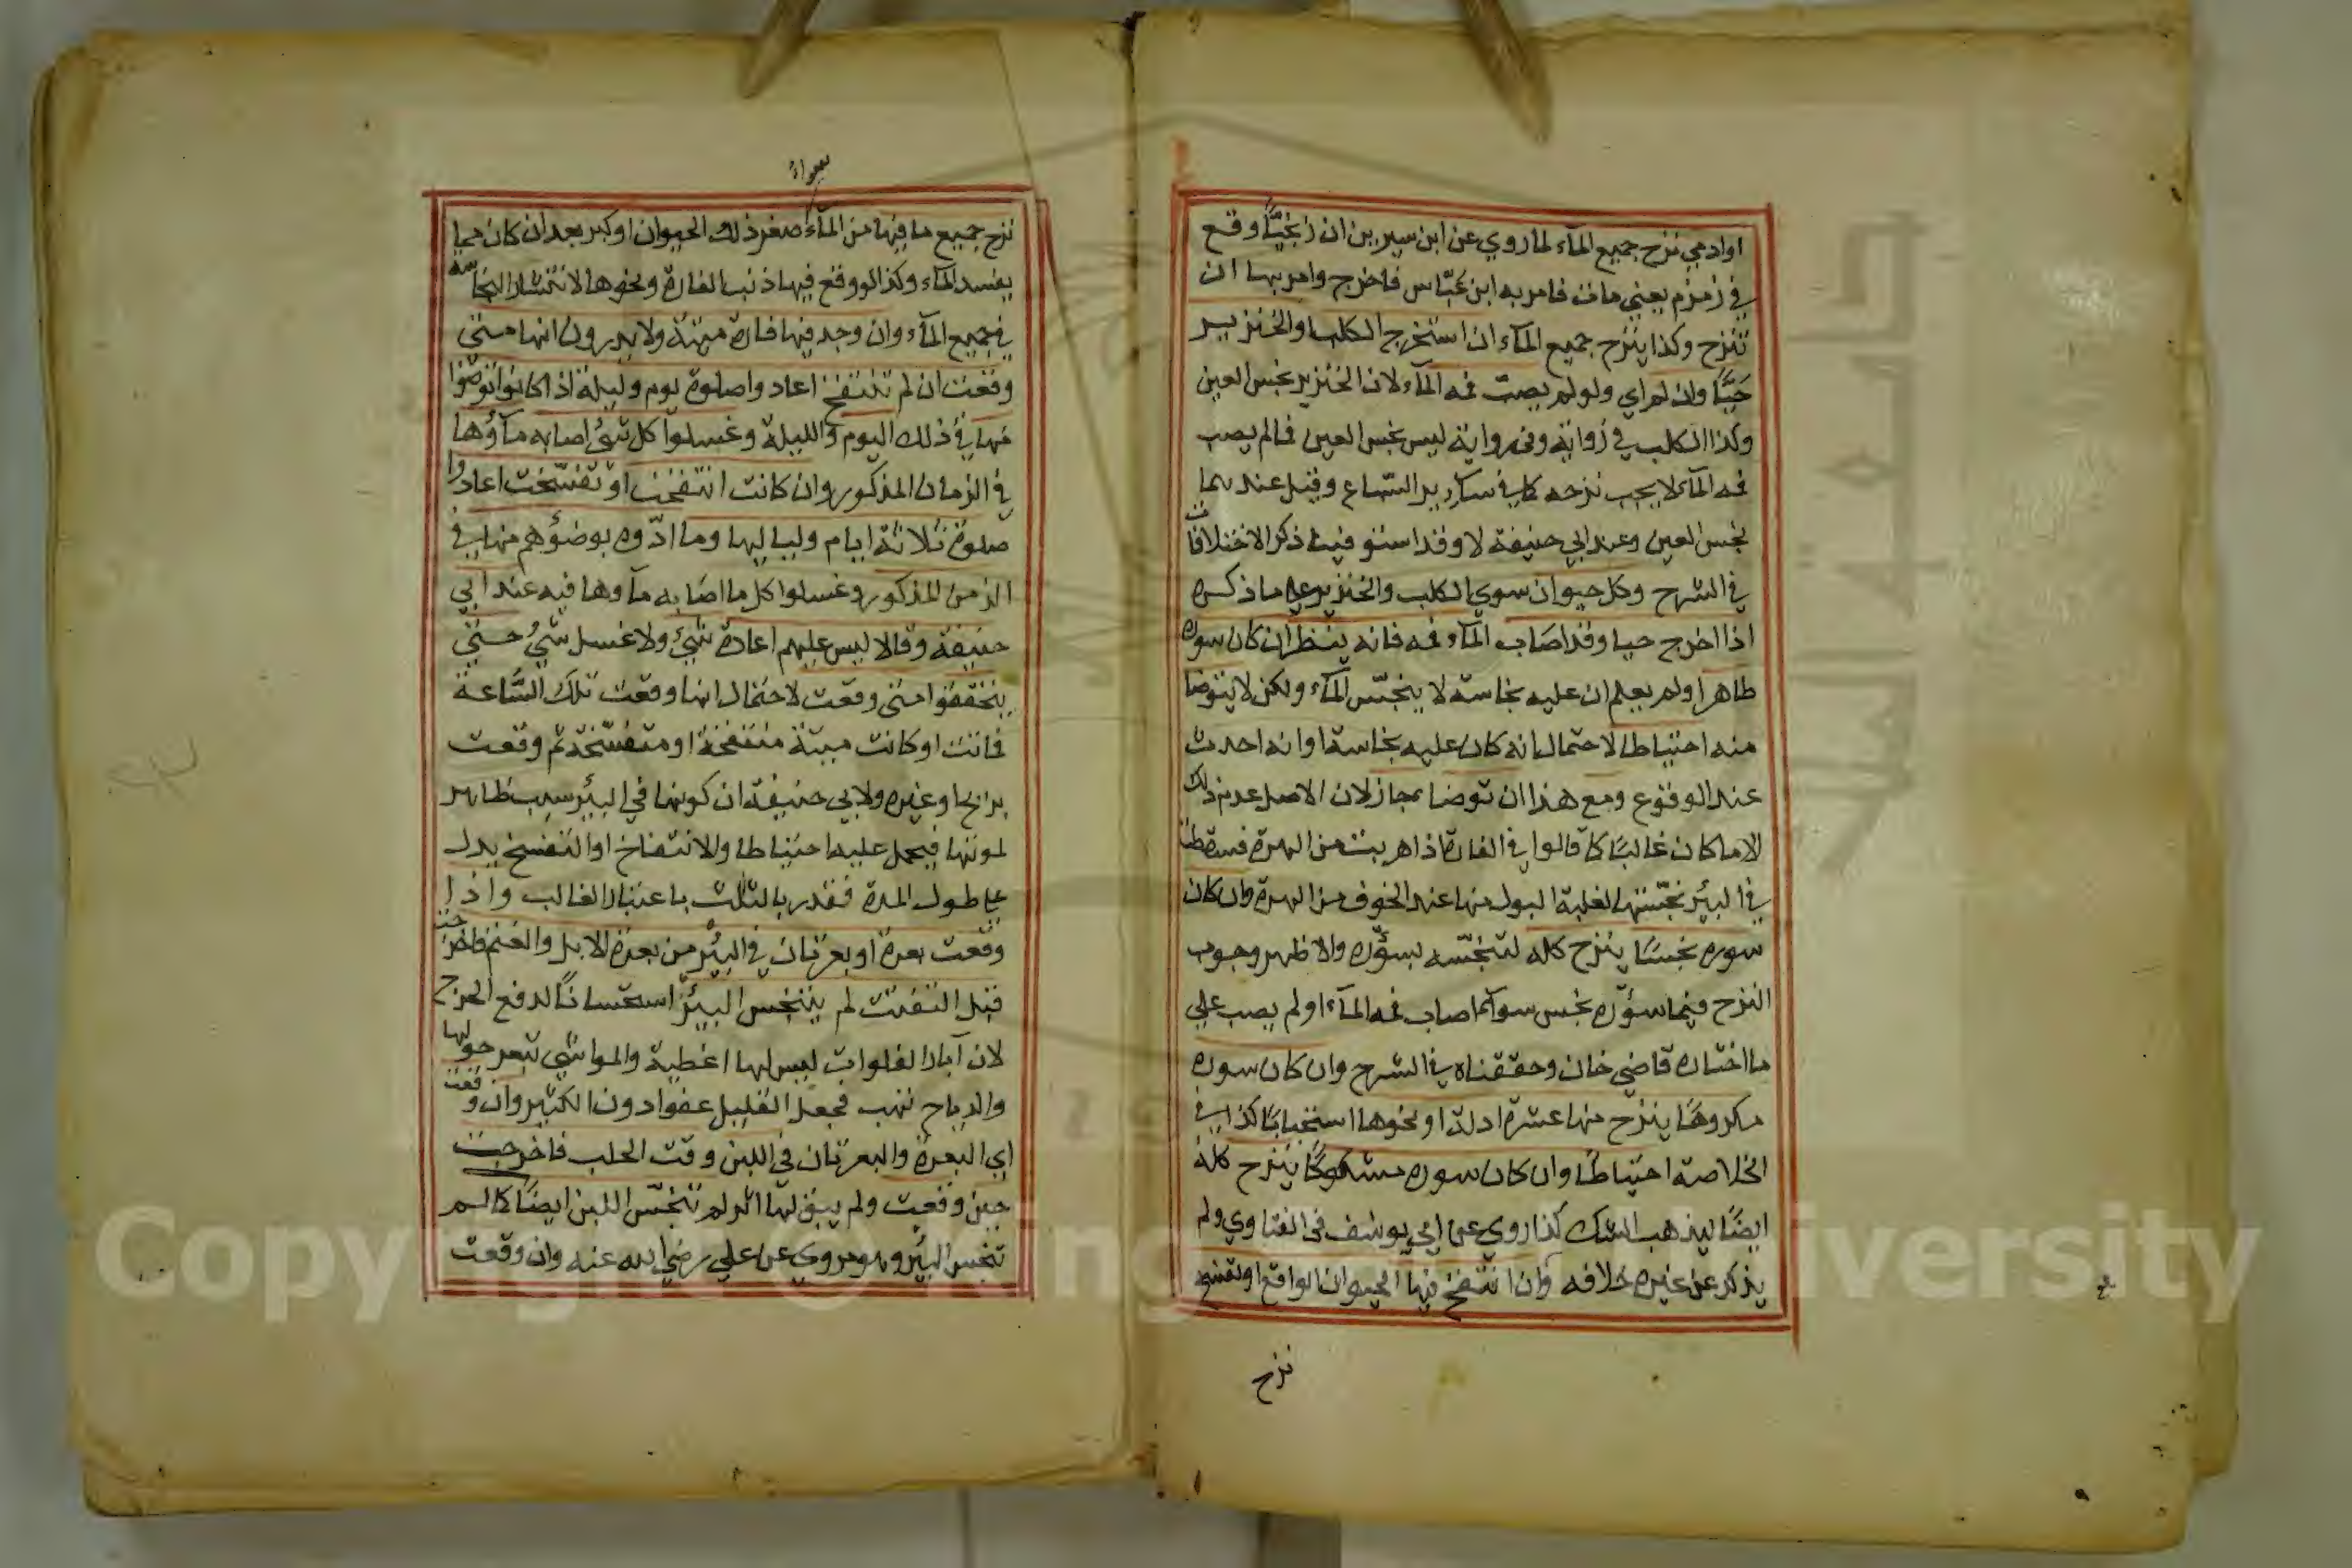 او ادمي نزح جميع المآء لما روي عن ابن سيرين ان زنجيًّا وقع
في زمزم يعني مات فامر به ابن عبّاس فاخرج وامر بها ان
تنزح وكذا ينزح جميع المآء ان استخرج الكلب او الخنزير
حيًّا وان لم اي ولو لم يصب فمه المآء لان الخنزير نجس العين
وكذا الكلب في رواية وفي رواية ليس نجس العين فالم يصب
فمه المآء لا يجب نزحه كما في سآئر السّباع وقيل عندهما
نجس العين وعند ابي حنيفة لا وقد استوفيت ذكر الاختلافات
في الشرح وكل حيوان سوي الكلب والخنزير علي ما ذكره
اذا اخرج حيا وقد اصاب المآء فمه فانه ينظر ان كان سوره
طاهرا ولم يعلم ان عليه نجاسة لا ينجّس المآء ولكن لا يتوضا
منه احتياطا لاحتمال انه كان عليه نجاسة او انه احدث
عند الوقوع ومع هذا ان توضا جاز لان الاصل عدم ذلك
الا ما كان غالبًا كما قالوا في الفارة اذا هربت من الهرة فسقطت
في البيئر نجّستها لغلبة البول منها عند الخوف من الهرة وان كان
سوره نجسًا ينزح كله لتنجّسه بسؤره والاظهر وجوب
النزح فيما سؤره نجس سوآء اصاب فمه المآء او لم يصب علي
ما اختاره قاضي خان وحققناه في الشرح وان كان سوره
مكروهًا ينزح منها عشرة ادلة او نحوها استحبابًا كذا في
الخلاصة احتياطًا وان كان سوره مشكوكًا ينزح كله
ايضًا ليذهب الشك كذا روي عن ابي يوسف في الفتاوي ولم
يذكر عن غيره خلافه وان انتفخ فيها الحيوان الواقع او تفسخ
نزح
سوآء
نزح جميع ما فيها من المآء صغر ذلك الحيوان او كبر بعد ان كان مما
يفسد المآء وكذا لو وقع فيها ذنب الفارة ونحوها لانتشار النجاسة
في جميع المآء وان وجد فيها فارة ميتة ولا يدرون انها متي
وقعت ان لم تنتفخ اعادوا صلوة يوم وليلة اذا كانوا توضؤا
منها في ذلك اليوم والليلة وغسلوا كل شئ اصابه مآؤها
في الزمان المذكور وان كانت انتفخت او تفسّخت اعادوا
صلوة ثلاثة ايام ولياليها وما ادّوه بوضؤهم منها في
الزمن المذكور وغسلوا كل ما اصابه مآوها فيه عند ابي
حنيفة وقالا ليس عليهم اعادة شئ ولا غسل شئ حتي
يتحققوا متي وقعت لاحتمال انها وقعت تلك السّاعة
فماتت او كانت ميتة منتفخة او متفسّخة ثم وقعت
بريح او غيره ولابي حنيفة ان كونها في البيئر سبب ظاهر
لموتها فيحمل عليه احتياطا والانتفاخ او التفسخ يدل
علي طول المدة فقدر بالثلث باعتبار الغالب واذا
وقعت بعرة او بعرتان في البيئر من بعرة الابل والغنم فاخرجت
قبل التفتت لم يتنجس البيئر استحسانًا لدفع الحرج
لان آبار الفلوات ليس لها اغطية والمواشي تبعر حولها
والرياح تهب فجعل القليل عفوا دون الكثير وان وقعت
اي البعرة والبعرتان في اللبن وقت الحلب فاخرجت
حين وقعت ولم يبق لها اثر لم تنجّس اللبن ايضًا كما لم
تنجس البيئر وهو مروي عن علي رضي الله عنه وان وقعت
Copyright © King University